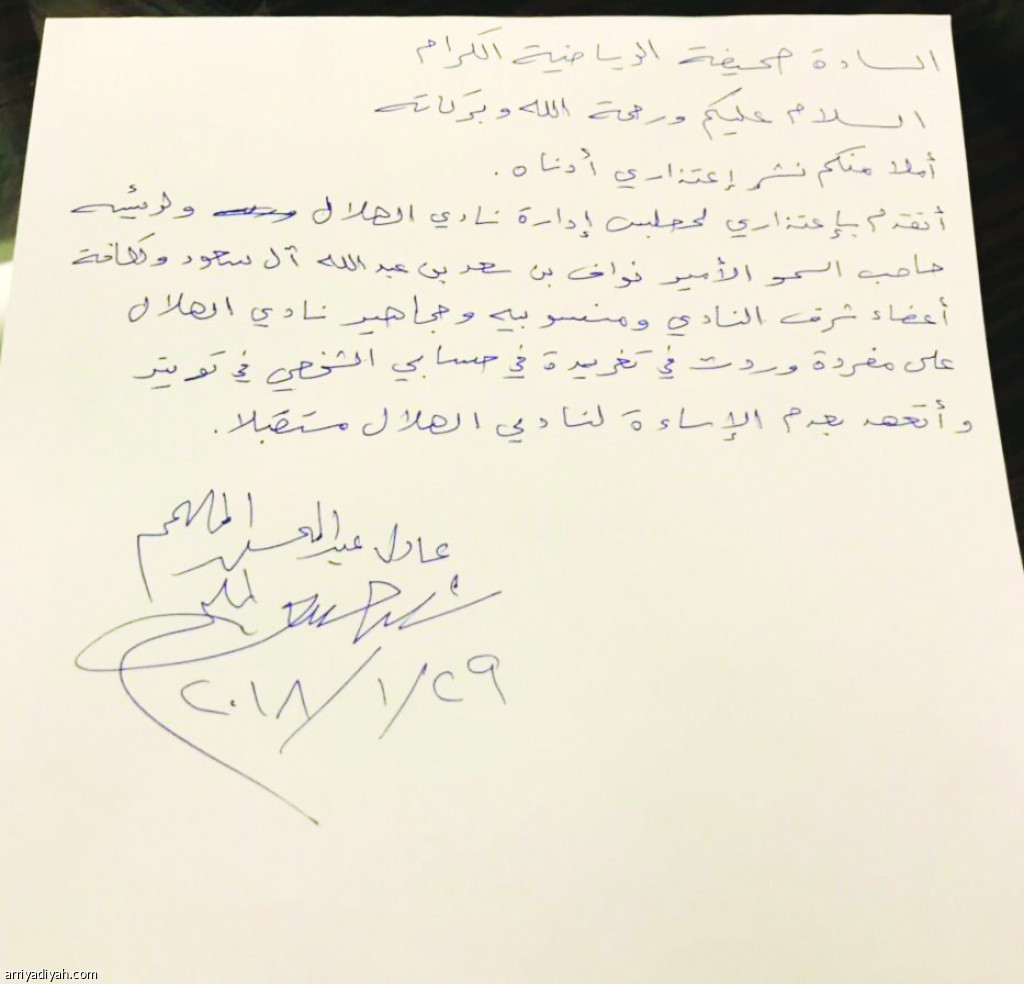 السادة صحيفة الرياضية الكرام
السلام عليكم ورحمة الله وبركاته
أملا منكم نشر إعتذاري أدناه.
أتقدم بإعتذاري لمجلس إدارة نادي الهلال ولرئيسه
صاحب السمو الأمير نواف بن سعد بن عبدالله آل سعود وكافة
أعضاء شرف النادي ومنسوبيه وجماهير نادي الهلال
على مفردة وردت في تغريدة في حسابي الشخصي في تويتر
وأتعهد بعدم الإساءة لنادي الهلال مستقبلا.
عادل عبدالمحسن الملحم
٢٠١٨/١/٢٩
arriyadiyah.com